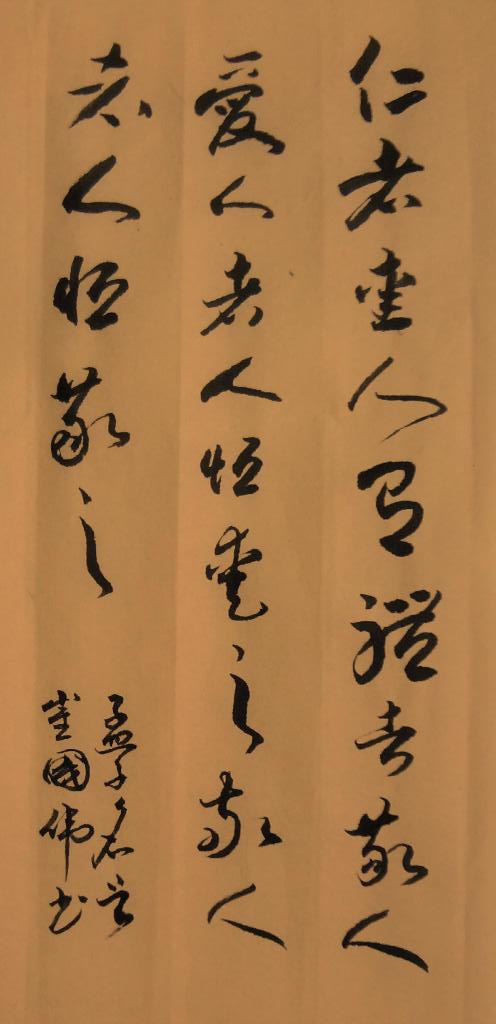 仁者爱人有礼者敬人
爱人者人恒爱之敬人
者人恒敬之
孟子名言
崔国伟书